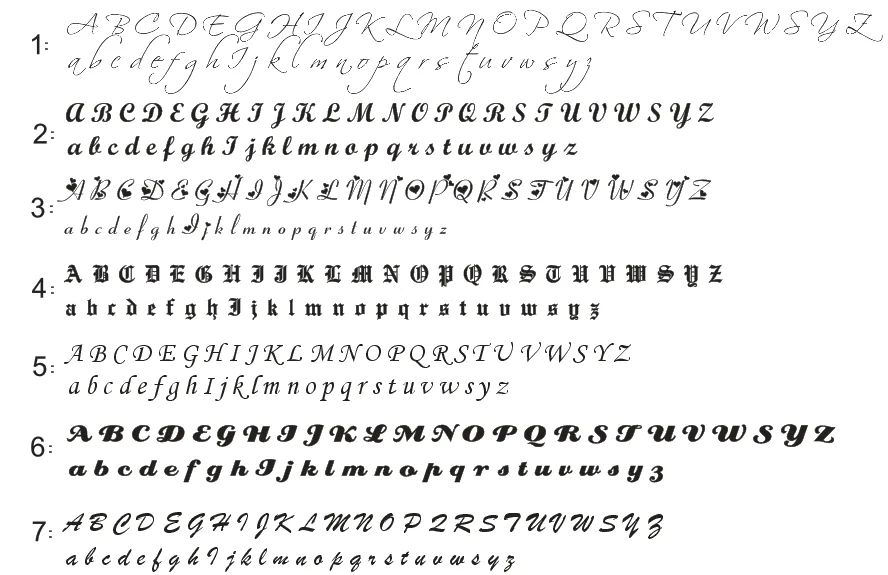 1: A B C D E G H I J K L M N O P Q R S T U V W S Y Z
a b c d e f g h I j k l m n o p q r s t u v w s y z
2: A B C D E G H I J K L M N O P Q R S T U V W S Y Z
a b c d e f g h I j k l m n o p q r s t u v w s y z
3: A B C D E G H I J K L M N O P Q R S T U V W S Y Z
a b c d e f g h I j k l m n o p q r s t u v w s y z
4: A B C D E G H I J K L M N O P Q R S T U V W S Y Z
a b c d e f g h I j k l m n o p q r s t u v w s y z
5: A B C D E G H I J K L M N O P Q R S T U V W S Y Z
a b c d e f g h I j k l m n o p q r s t u v w s y z
6: A B C D E G H I J K L M N O P Q R S T U V W S Y Z
a b c d e f g h I j k l m n o p q r s t u v w s y z
7: A B C D E G H I J K L M N O P Q R S T U V W S Y Z
a b c d e f g h I j k l m n o p q r s t u v w s y z